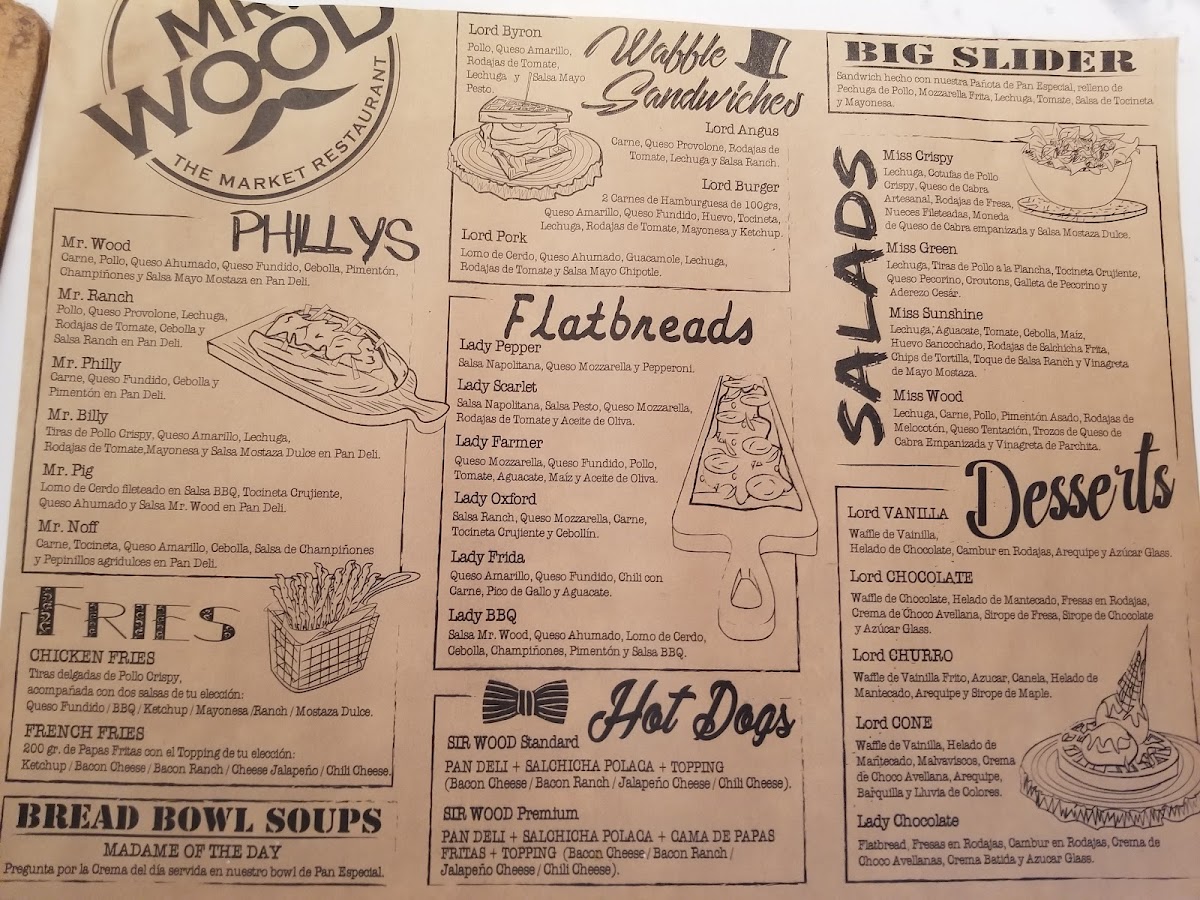 MR.
WOOD
THE MARKET RESTAURANT
PHILLYS
Mr. Wood
Carne, Pollo, Queso Ahumado, Queso Fundido, Cebolla, Pimentón,
Champiñones y Salsa Mayo Mostaza en Pan Deli.
Mr. Ranch
Pollo, Queso Provolone, Lechuga,
Rodajas de Tomate, Cebolla y
Salsa Ranch en Pan Deli.
Mr. Philly
Carne, Queso Fundido, Cebolla y
Pimentón en Pan Deli.
Mr. Billy
Tiras de Pollo Crispy, Queso Amarillo, Lechuga,
Rodajas de Tomate,Mayonesa y Salsa Mostaza Dulce en Pan Deli.
Mr. Pig
Lomo de Cerdo fileteado en Salsa BBQ, Tocineta Crujiente,
Queso Ahumado y Salsa Mr. Wood en Pan Deli.
Mr. Noff
Carne, Tocineta, Queso Amarillo, Cebolla, Salsa de Champiñones
y Pepinillos agridulces en Pan Deli.
FRIES
CHICKEN FRIES
Tiras delgadas de Pollo Crispy,
acompañada con dos salsas de tu elección:
Queso Fundido / BBQ / Ketchup / Mayonesa /Ranch / Mostaza Dulce.
FRENCH FRIES
200 gr. de Papas Fritas con el Topping de tu elección:
Ketchup / Bacon Cheese / Bacon Ranch / Cheese Jalapeño / Chili Cheese.
BREAD BOWL SOUPS
MADAME OF THE DAY
Pregunta por la Crema del día servida en nuestro bowl de Pan Especial.
Waffle
Sandwiches
Lord Byron
Pollo, Queso Amarillo,
Rodajas de Tomate,
Lechuga y Salsa Mayo
Pesto.
Lord Angus
Carne, Queso Provolone, Rodajas de
Tomate, Lechuga y Salsa Ranch.
Lord Burger
2 Carnes de Hamburguesa de 100grs,
Queso Amarillo, Queso Fundido, Huevo, Tocineta,
Lechuga, Rodajas de Tomate, Mayonesa y Ketchup.
Lord Pork
Lomo de Cerdo, Queso Ahumado, Guacamole, Lechuga,
Rodajas de Tomate y Salsa Mayo Chipotle.
Flatbreads
Lady Pepper
Salsa Napolitana, Queso Mozzarella y Pepperoni.
Lady Scarlet
Salsa Napolitana, Salsa Pesto, Queso Mozzarella,
Rodajas de Tomate y Aceite de Oliva.
Lady Farmer
Queso Mozzarella, Queso Fundido, Pollo,
Tomate, Aguacate, Maíz y Aceite de Oliva.
Lady Oxford
Salsa Ranch, Queso Mozzarella, Carne,
Tocineta Crujiente y Cebollín.
Lady Frida
Queso Amarillo, Queso Fundido, Chili con
Carne, Pico de Gallo y Aguacate.
Lady BBQ
Salsa Mr. Wood, Queso Ahumado, Lomo de Cerdo,
Cebolla, Champiñones, Pimentón y Salsa BBQ.
Hot Dogs
SIR WOOD Standard
PAN DELI + SALCHICHA POLACA + TOPPING
(Bacon Cheese / Bacon Ranch / Jalapeño Cheese / Chili Cheese).
SIR WOOD Premium
PAN DELI + SALCHICHA POLACA + CAMA DE PAPAS
FRITAS + TOPPING (Bacon Cheese / Bacon Ranch /
Jalapeño Cheese / Chili Cheese).
BIG SLIDER
Sandwich hecho con nuestra Pañota de Pan Especial, relleno de
Pechuga de Pollo, Mozzarella Frita, Lechuga, Tomate, Salsa de Tocineta
y Mayonesa.
SALADS
Miss Crispy
Lechuga, Cotufas de Pollo
Crispy, Queso de Cabra
Artesanal, Rodajas de Fresa,
Nueces Fileteadas, Moneda
de Queso de Cabra empanizada y Salsa Mostaza Dulce.
Miss Green
Lechuga, Tiras de Pollo a la Plancha, Tocineta Crujiente,
Queso Pecorino, Croutons, Galleta de Pecorino y
Aderezo Cesár.
Miss Sunshine
Lechuga, Aguacate, Tomate, Cebolla, Maíz,
Huevo Sancochado, Rodajas de Salchicha Frita,
Chips de Tortilla, Toque de Salsa Ranch y Vinagreta
de Mayo Mostaza.
Miss Wood
Lechuga, Carne, Pollo, Pimentón Asado, Rodajas de
Melocotón, Queso Tentación, Trozos de Queso de
Cabra Empanizada y Vinagreta de Parchita.
Desserts
Lord VANILLA
Waffle de Vainilla,
Helado de Chocolate, Cambur en Rodajas, Arequipe y Azúcar Glass.
Lord CHOCOLATE
Waffle de Chocolate, Helado de Mantecado, Fresas en Rodajas,
Crema de Choco Avellana, Sirope de Fresa, Sirope de Chocolate
y Azúcar Glass.
Lord CHURRO
Waffle de Vainilla Frito, Azucar, Canela, Helado de
Mantecado, Arequipe y Sirope de Maple.
Lord CONE
Waffle de Vainilla, Helado de
Mantecado, Malvaviscos, Crema
de Choco Avellana, Arequipe,
Barquilla y Lluvia de Colores.
Lady Chocolate
Flatbread, Fresas en Rodajas, Cambur en Rodajas, Crema de
Choco Avellanas, Crema Batida y Azucar Glass.